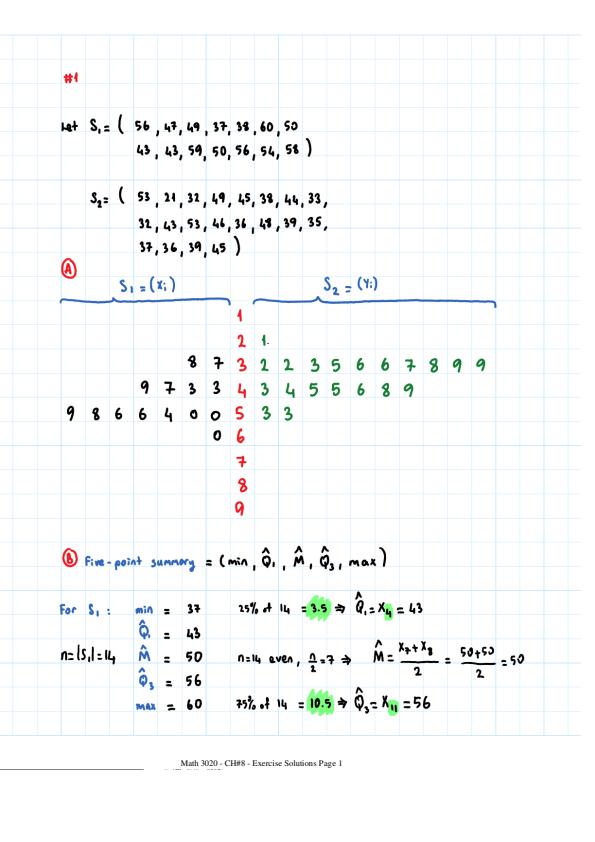 #1
Let S₁ = ( 56 , 47 , 49 , 37 , 38 , 60 , 50
43 , 43 , 59 , 50 , 56 , 54 , 58 )
S₂ = ( 53 , 21 , 32 , 49 , 45 , 38 , 44 , 33 ,
32 , 43 , 53 , 46 , 36 , 48 , 39 , 35 ,
37 , 36 , 39 , 45 )
A
S₁ = (Xᵢ) S₂ = (Yᵢ)
1
2 1.
8 7 3 2 2 3 5 6 6 7 8 9 9
9 7 3 3 4 3 4 5 5 6 8 9
9 8 6 6 4 0 0 5 3 3
0 6
7
8
9
B Five-point summary = (min , Q̂₁ , M̂ , Q̂₃ , max)
For S₁ : min = 37 25% of 14 = 3.5 ⇒ Q̂₁ = X₄ = 43
Q̂₁ = 43
n = |S₁| = 14 M̂ = 50 n=14 even , n/2 = 7 ⇒ M̂ = (X₇ + X₈)/2 = (50+50)/2 = 50
Q̂₃ = 56
max = 60 75% of 14 = 10.5 ⇒ Q̂₃ = X₁₁ = 56
Math 3020 - CH#8 - Exercise Solutions Page 1